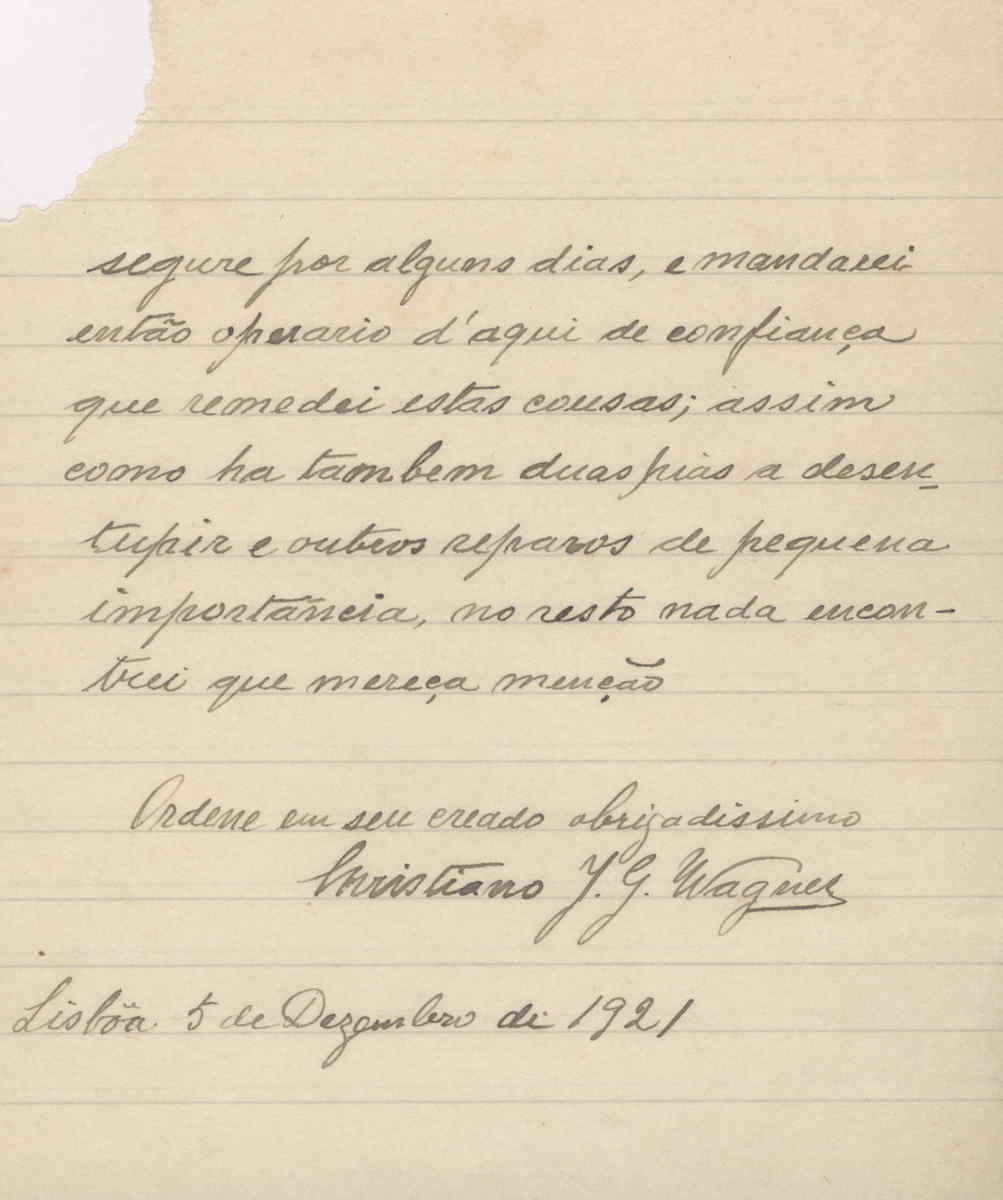 segure por alguns dias, e mandarei
então operario d'aqui de confiança
que remedei estas cousas; assim
como ha tambem duas pias a desen-
tupir e outros reparos de pequena
importância, no resto nada encon-
trei que mereça menção
Ordene em seu creado obrigadissimo
Christiano J. G. Wagner
Lisbôa 5 de Dezembro de 1921